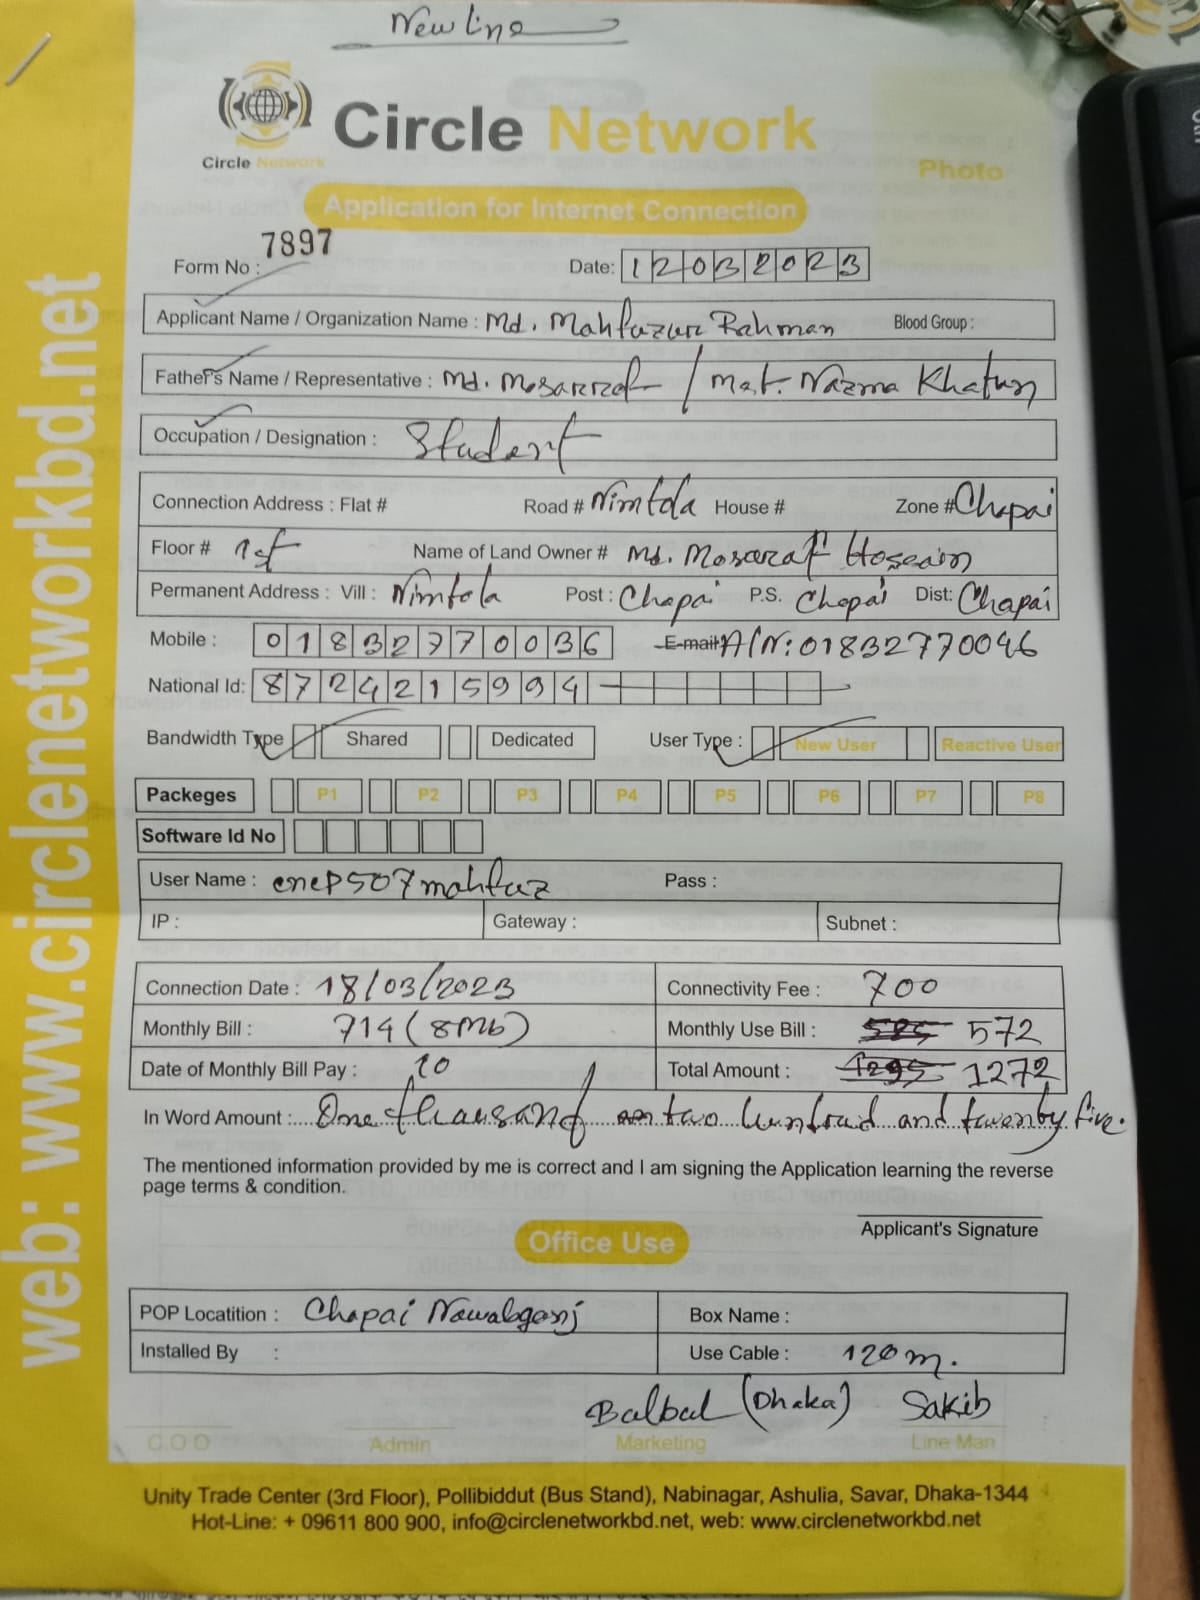 New Line
Circle Network
Circle Network
Photo
Application for Internet Connection
Form No : 7897
Date: 12032023
Applicant Name / Organization Name : Md. Mahfuzur Rahman Blood Group :
Father's Name / Representative : Md. Mosarrof / Mst. Nazma Khatun
Occupation / Designation : Student
Connection Address : Flat # Road # Nimtola House # Zone # Chapai
Floor # 1st Name of Land Owner # Md. Mosaraf Hossain
Permanent Address : Vill : Nimtola Post : Chapai P.S. Chapai Dist: Chapai
Mobile : 01832770036 E-mail: A/N: 01832770046
National Id: 8724215994
Bandwidth Type Shared Dedicated User Type : New User Reactive User
Packeges P1 P2 P3 P4 P5 P6 P7 P8
Software Id No
User Name : cncp507mahfuz Pass :
IP : Gateway : Subnet :
Connection Date : 18/03/2023 Connectivity Fee : 700
Monthly Bill : 714 (8Mb) Monthly Use Bill : 525 572
Date of Monthly Bill Pay : 10 Total Amount : 1295 1272
In Word Amount :.... One thausand two hundraid and twenty five.
The mentioned information provided by me is correct and I am signing the Application learning the reverse
page terms & condition.
Applicant's Signature
Office Use
POP Locatition : Chapai Nawabganj Box Name :
Installed By : Use Cable : 120m.
Balbal (Dhaka) Sakib
C O O Admin Marketing Line Man
Unity Trade Center (3rd Floor), Pollibiddut (Bus Stand), Nabinagar, Ashulia, Savar, Dhaka-1344
Hot-Line: + 09611 800 900, info@circlenetworkbd.net, web: www.circlenetworkbd.net
web: www.circlenetworkbd.net